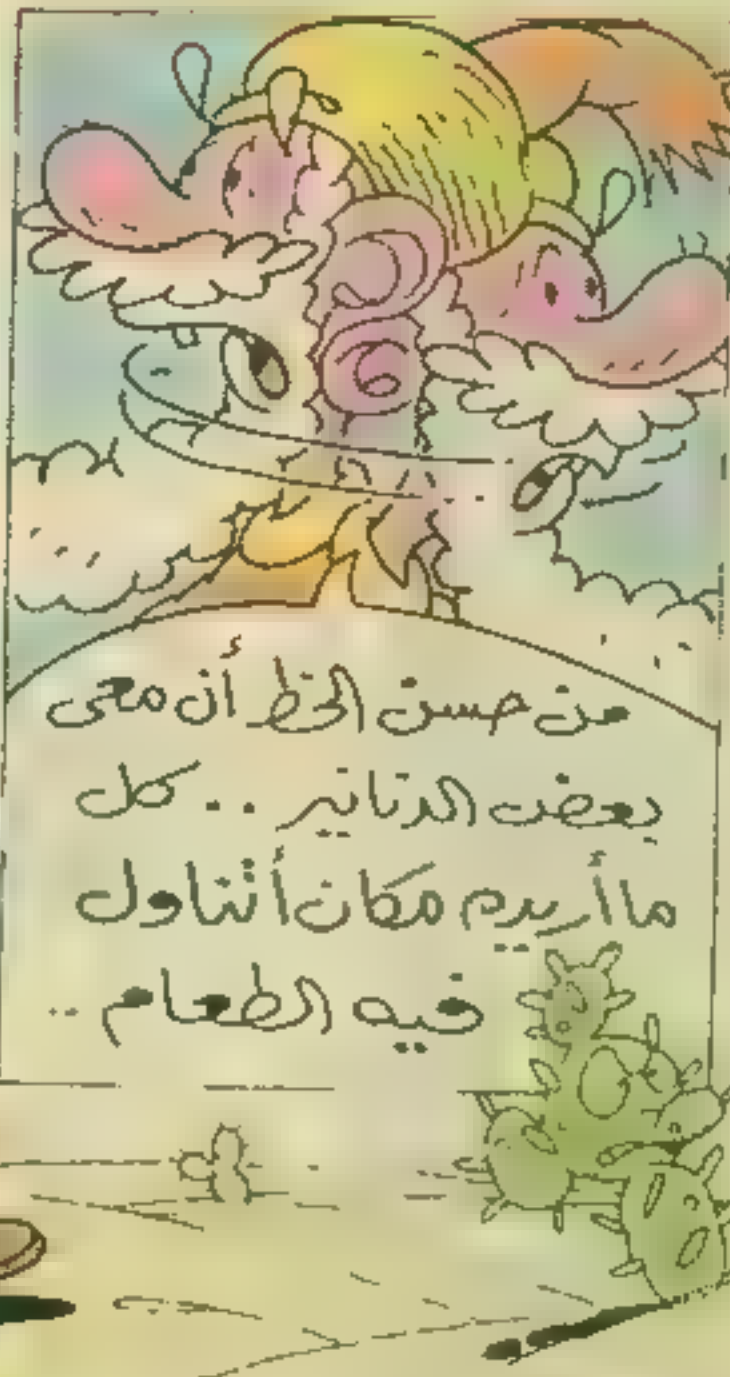 من حسن الحظ أن معى
بعض الدنانير .. كل
ما أريده مكان أتناول
فيه الطعام ..